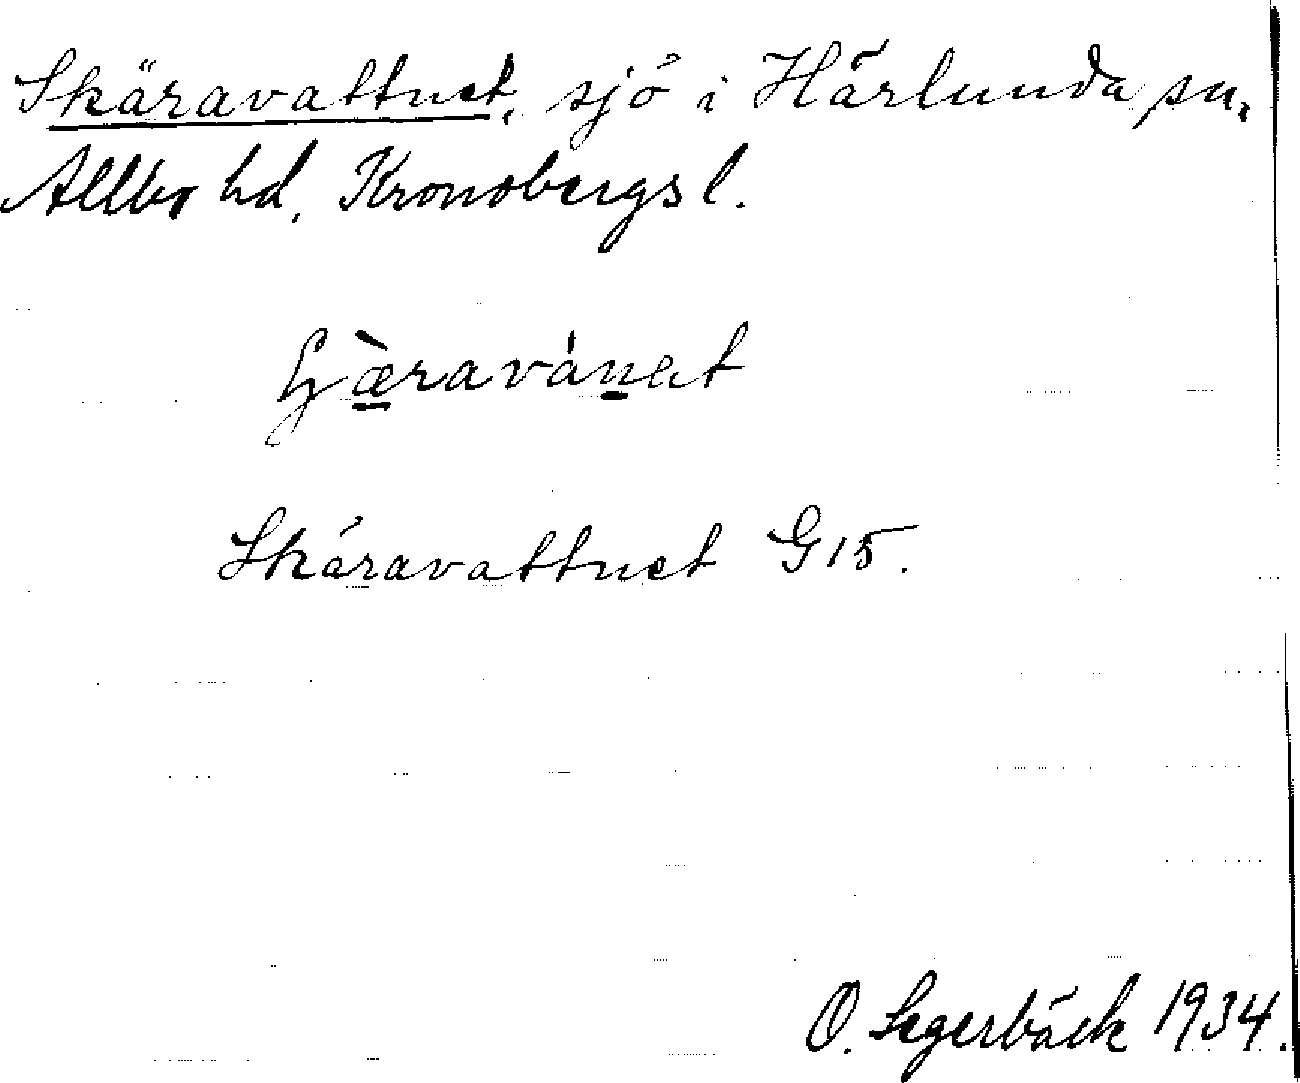 Skäravattnet, sjö i Härlunda sn.
Allbo hd, Kronobergs l.
Skäravattnet G15.
O. Segerbäck 1934.